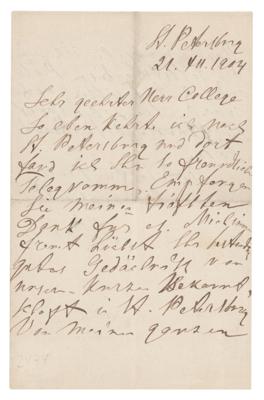 St. Petersburg
21. XII. 1904
Sehr geehrter Herr College
So eben kehrte ich nach
St. Petersburg und dort
fand ich Ihr so freundliches
Telegramm. Empfangen
Sie meinen
Dank für
Ihr
gutes Gedächtniss von
unserer kurzen Bekannt-
schaft in St. Petersburg
Von meinem ganzen